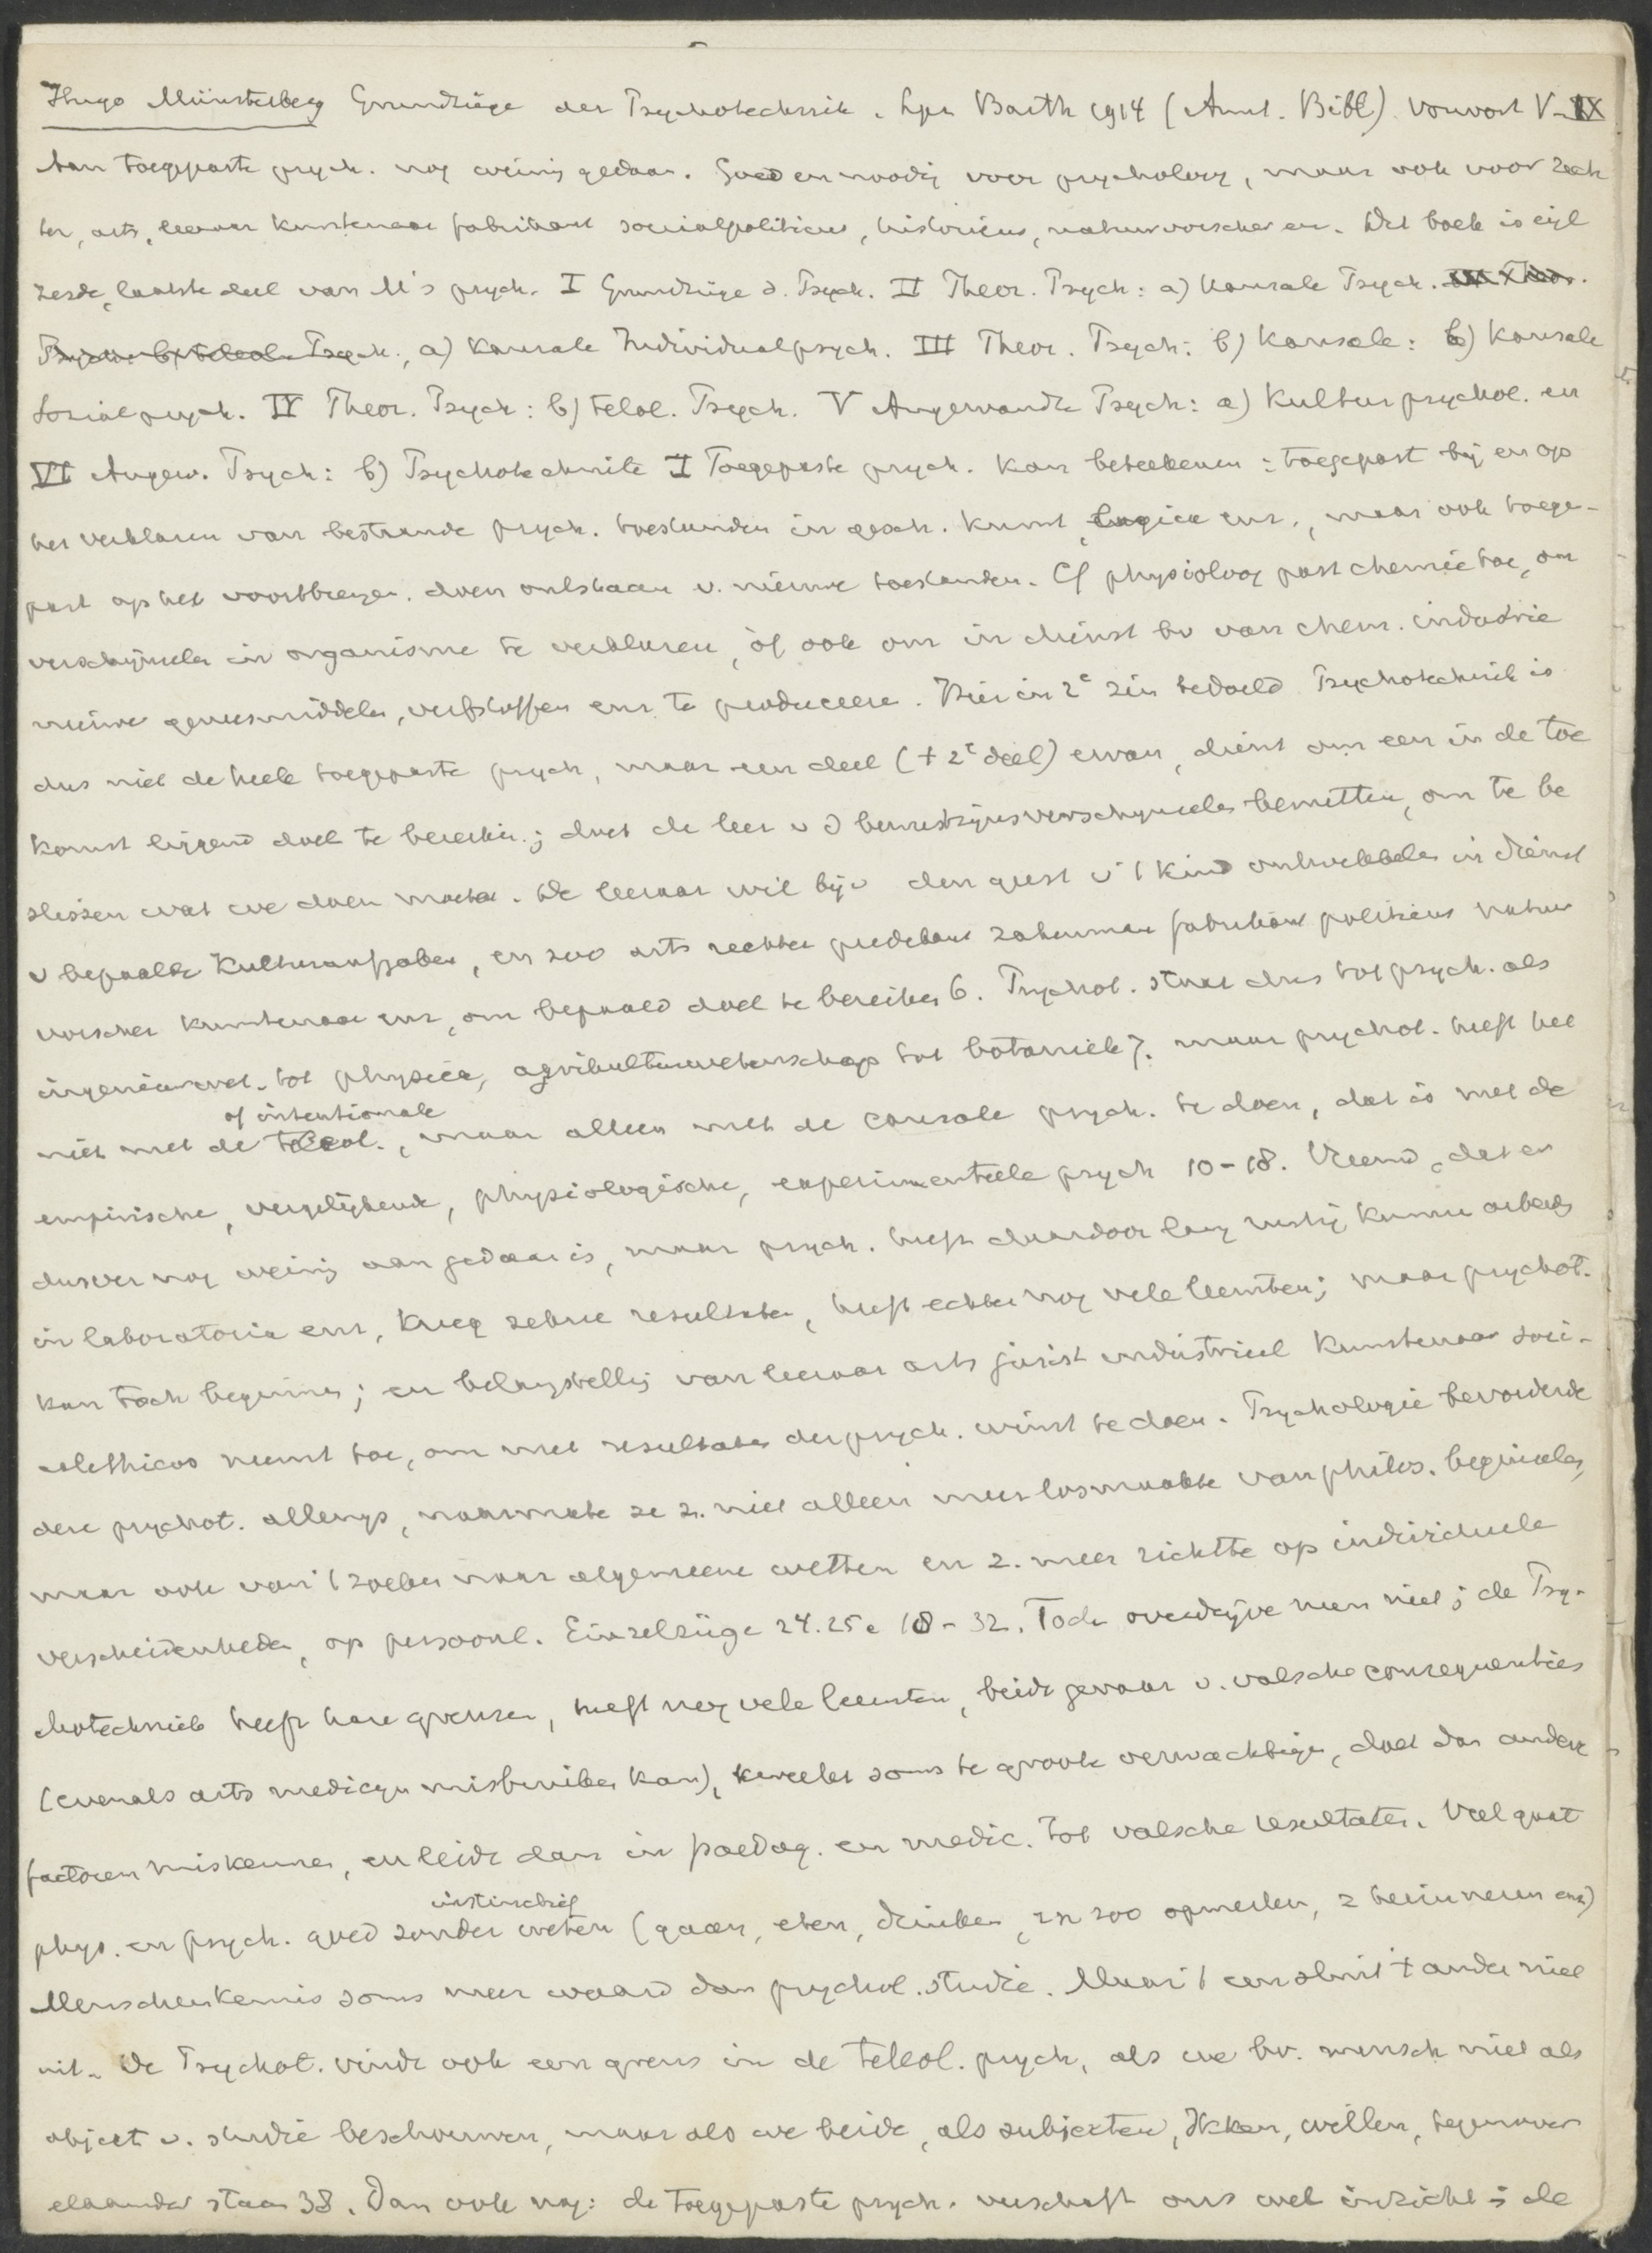 Hugo Münsterberg Grundzüge der Psychotechnik. Lpz Barth 1914 (Amst. Bibl.) Vorwort V-IX
Aan toegepaste psych. nog weinig gedaan. Goed en noodig voor psycholoog, maar ook voor rech
ter, arts, leeraar kunstenaar fabrikant sociaalpoliticus, historicus, natuurvorscher en. Dit boek is eigl
zesde, laatste deel van M's psych. I Grundzüge d. Psych. II Theor. Psych: a) Kausale Psych.
Psych., a) Kausale Individualpsych. III Theor. Psych: b) Kausale: b) Kausale
Sozialpsych. IV Theor. Psych: b) Teleol. Psych. V Angewandte Psych: a) Kulturpsychol. en
VI Angew. Psych: b) Psychotechnik I Toegepaste psych. kan beteekenen: toegepast bij en op
het verklaren van bestaande psych. toestanden in gesch. kunst, logica enz., maar ook toege-
past op het voortbrengen. doen ontstaan v. nieuwe toestanden. Cf physioloog past chemie toe, om
verschijnselen in organisme te verklaren, òf ook om in dienst bv van chem. industrie
nieuwe geneesmiddelen, verfstoffen enz te produceeren. Hier in 2e zin bedoeld Psychotechniek is
dus niet de heele toegepaste psych, maar een deel (t 2e deel) ervan, dient om een in de toe
komst liggend doel te bereiken.; doet de leer v d bewustzijnsverschijnselen benutten, om te be
slissen wat we doen moeten. De leeraar wil bijv den geest v 't kind ontwikkelen in dienst
v bepaalde Kulturaufgaben, en zoo arts rechter predikant zakenman fabrikant politicus natuur
vorscher kunstenaar enz, om bepaald doel te bereiken 6. Psychot. staat dus tot psych. als
ingenieurwet. tot physica, agrikultuurwetenschap tot botaniek 7. maar psychot. heeft het
of intentionale
niet met de teleol., maar alleen met de causale psych. te doen, dat is met de
empirische, vergelijkende, physiologische, experimenteele psych 10-18. Vreemd, dat er
dusver nog weinig aan gedaan is, maar psych. heeft daardoor lang rustig kunnen arbeiden
in laboratoria enz, kreeg zekere resultaten, heeft echter nog vele leemten; maar psychot.
kan toch beginnen; en belangstelling van leeraar arts jurist industrieel kunstenaar soci-
alethicus neemt toe, om met resultaten der psych. winst te doen. Psychologie bevorderde
deze psychot. allengs, naarmate ze z. niet alleen meer losmaakte van philos. beginselen,
maar ook van 't zoeken naar algemeene wetten en z. meer richtte op individueele
verscheidenheden, op persoonl. Einzelzüge 24.25. 18-32. Toch overdrijve men niet; de Psy-
chotechniek heeft hare grenzen, heeft nog vele leemten, biedt gevaar v. valsche consequenties
(evenals arts medicijn misbruiken kan), kweekt soms te groote verwachtingen, doet dan andere
factoren miskennen, en leidt dan in paedag. en medic. tot valsche resultaten. Veel gaat
instinctief
phys. en psych. goed zonder weten (gaan, eten, drinken, en zoo opmerken, z herinneren enz)
Menschenkennis soms meer waard dan psychol. studie. Maar 't een sluit t ander niet
uit. De Psychot. vindt ook een grens in de teleol. psych, als we bv. mensch niet als
object v. studie beschouwen, maar als we beide, als subjecten, Ikken, willen, tegenover
elkander staan 38. Dan ook nog: de toegepaste psych. verschaft ons wel inzicht i de